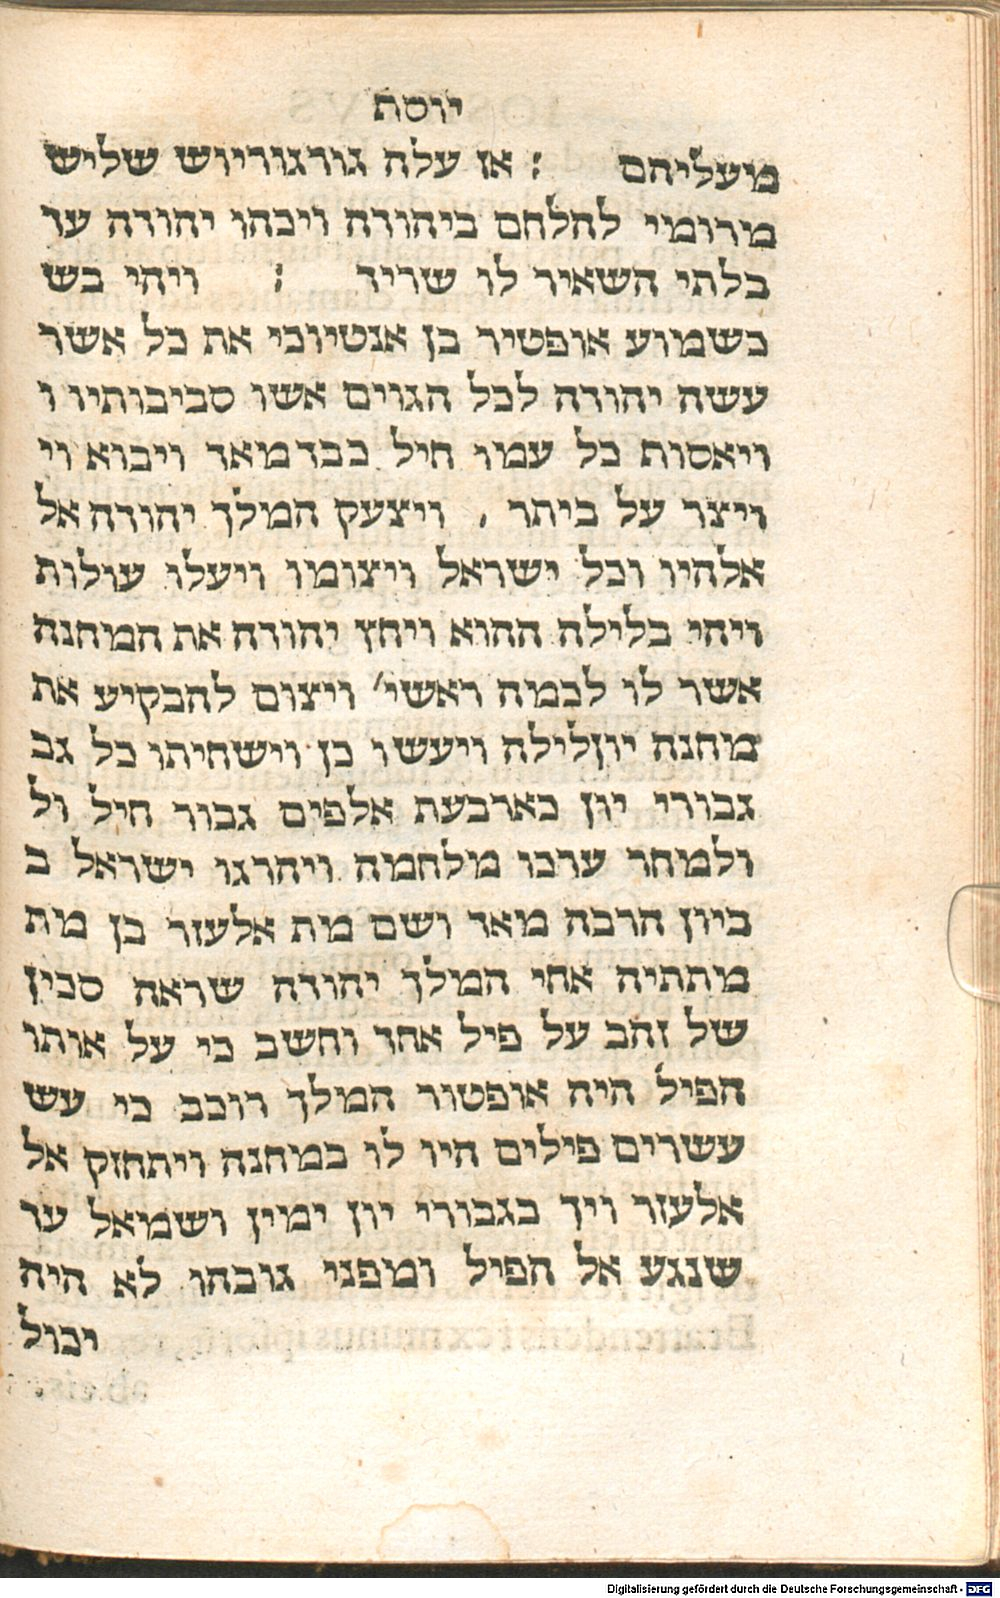 יוסת
מעליהם : אז עלה גורגוריוש שליש
מרומי להלחם ביהודה ויכהו יהודה עד
בלתי השאיר לו שריד : ויהי בש
כשמוע אופטיר בן אנטיוכי את כל אשר
עשה יהודה לכל הגוים אשו סביבותיו ו
ויאסות כל עמו חיל כבד מאד ויבוא וי
ויצר על ביתר , ויצעק המלך יהודה אל
אלהיו וכל ישראל ויצומו ויעלו עולות
ויהי בלילה ההוא ויחץ יהודה את המחנה
אשר לו לכמה ראשי׳ ויצום להבקיע את
מחנה יון לילה ויעשו כן וישחיתו כל גב
גבורי יון כארבעת אלפים גבור חיל ול
ולמחר ערכו מלחמה ויהרגו ישראל ב
ביון הרבה מאד ושם מת אלעזר בן מת
מתתיה אחי המלך יהודה שראה סכין
של זהב על פיל אחד וחשב כי על אותו
הפיל היה אופטור המלך רוכב כי עש
עשרים פילים היו לו במחנה ויתחזק אל
אלעזר ויך בגבורי יון ימין ושמאל עד
שנגע אל הפיל ומפני גובהו לא היה
יכול
Digitalisierung gefördert durch die Deutsche Forschungsgemeinschaft - DFG